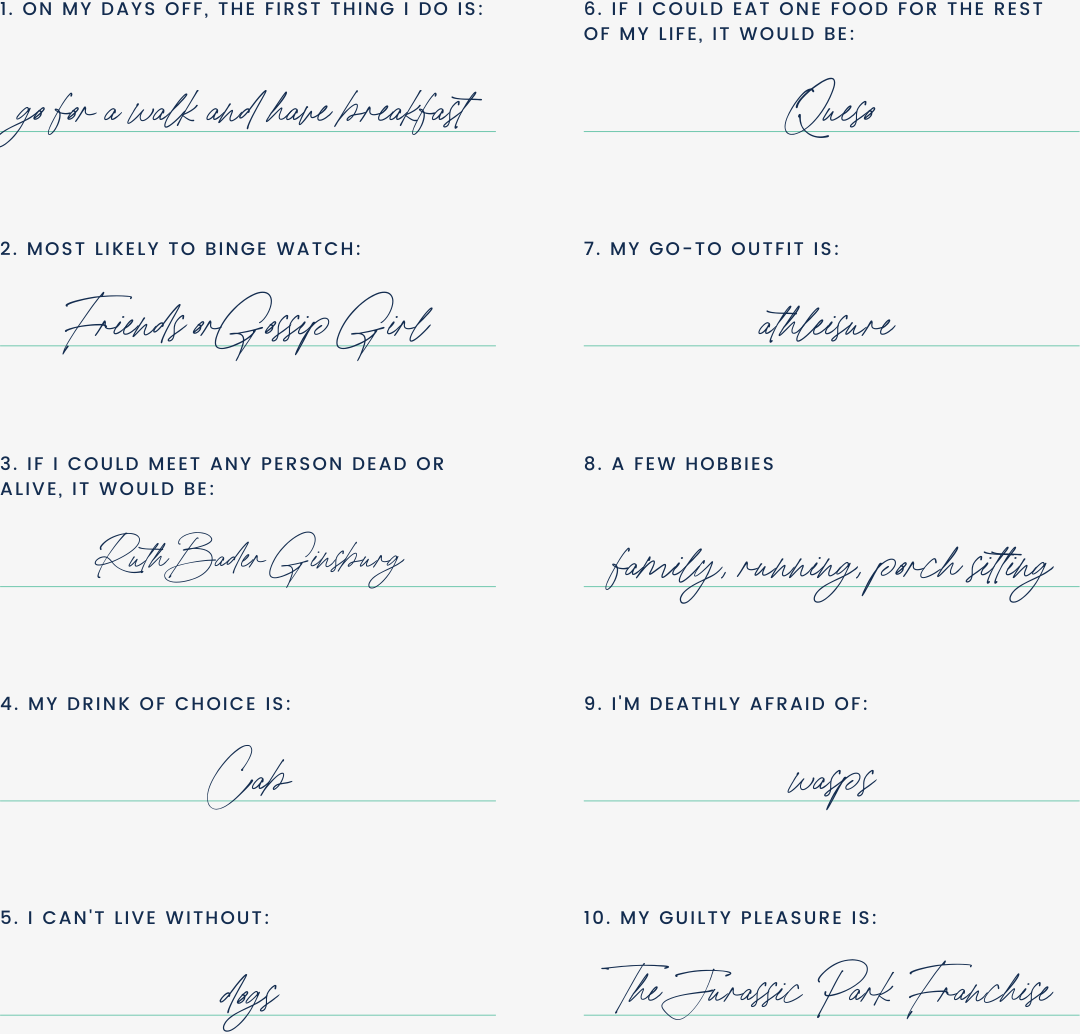 1. ON MY DAYS OFF, THE FIRST THING I DO IS:
go for a walk and have breakfast
2. MOST LIKELY TO BINGE WATCH:
Friends or Gossip Girl
3. IF I COULD MEET ANY PERSON DEAD OR
ALIVE, IT WOULD BE:
Ruth Bader Ginsburg
4. MY DRINK OF CHOICE IS:
Cab
5. I CAN'T LIVE WITHOUT:
dogs
6. IF I COULD EAT ONE FOOD FOR THE REST
OF MY LIFE, IT WOULD BE:
Queso
7. MY GO-TO OUTFIT IS:
athleisure
8. A FEW HOBBIES
family, running, porch sitting
9. I'M DEATHLY AFRAID OF:
wasps
10. MY GUILTY PLEASURE IS:
The Jurassic Park Franchise